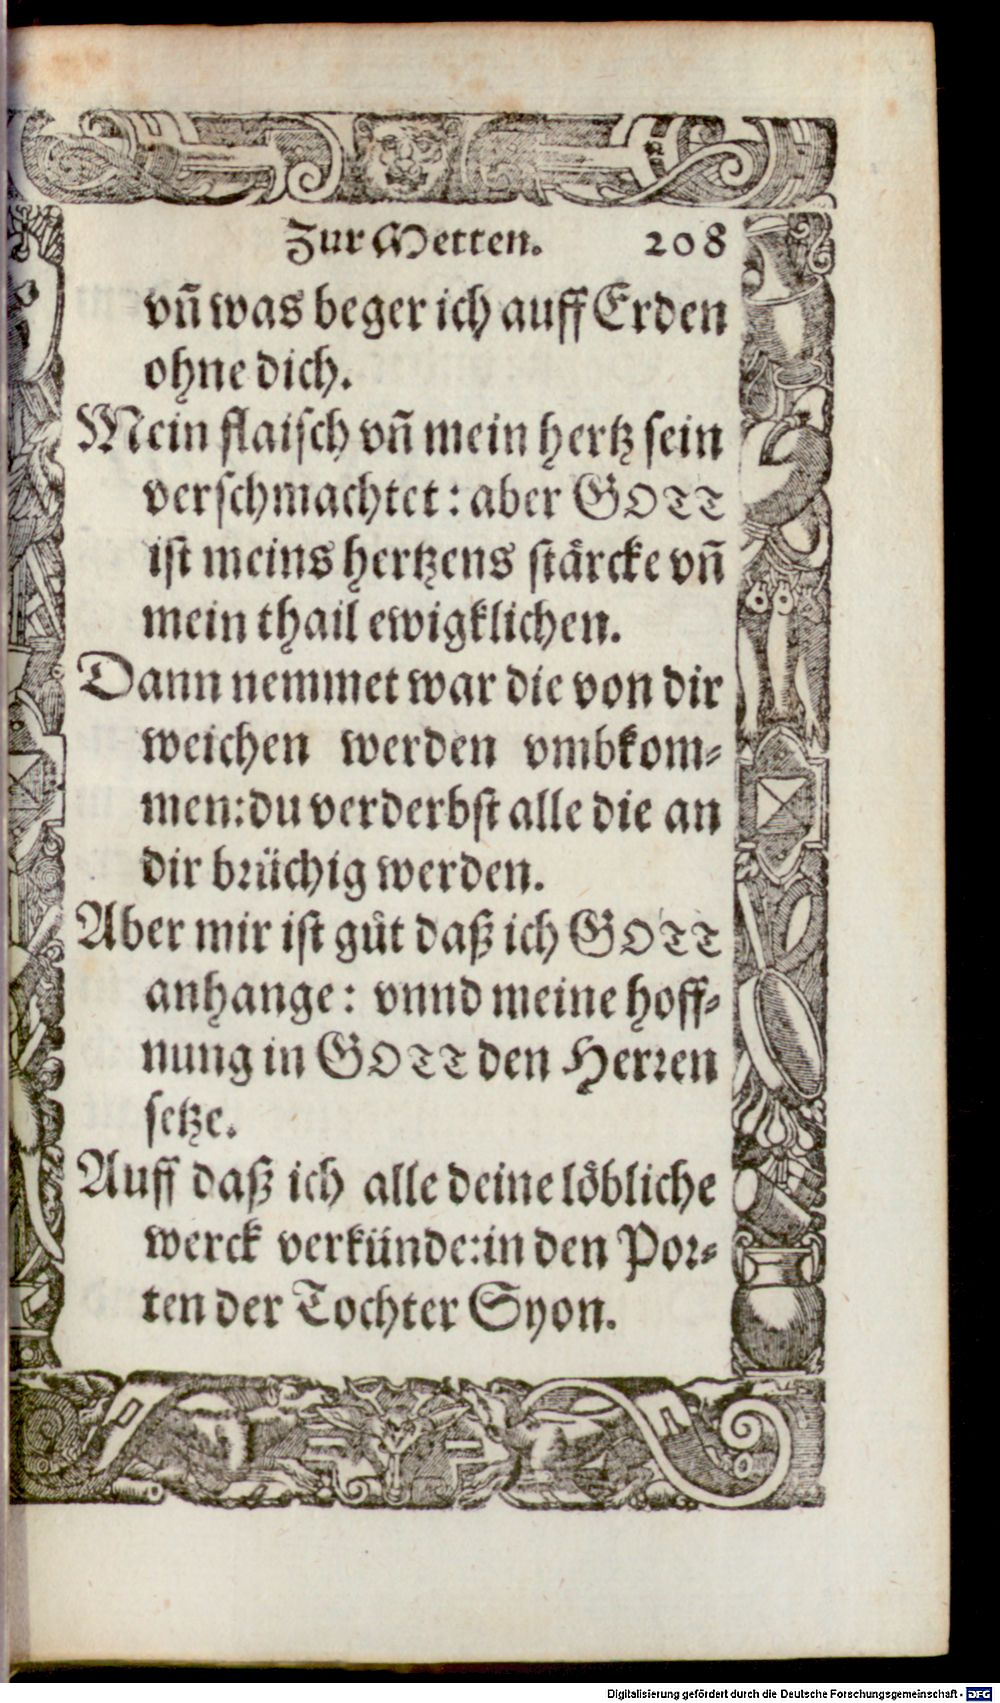 Zur Metten. 208
vñ was beger ich auff Erden
ohne dich.
Mein flaisch vñ mein hertz sein
verschmachtet: aber GOTT
ist meins hertzens stärcke vñ
mein thail ewigklichen.
Dann nemmet war die von dir
weichen werden vmbkom⸗
men: du verderbst alle die an
dir brüchig werden.
Aber mir ist gůt daß ich GOTT
anhange: vnnd meine hoff⸗
nung in GOTT den Herren
setze.
Auff daß ich alle deine löbliche
werck verkünde: in den Por⸗
ten der Tochter Syon.
Digitalisierung gefördert durch die Deutsche Forschungsgemeinschaft - DFG